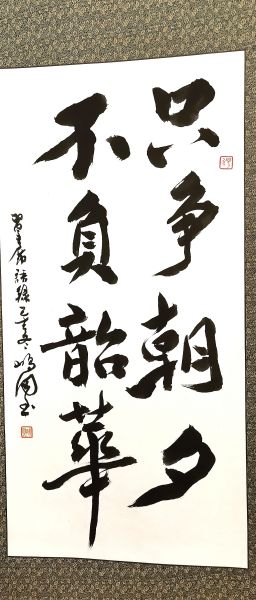 只争朝夕
不負韶華
習主席語錄己亥冬